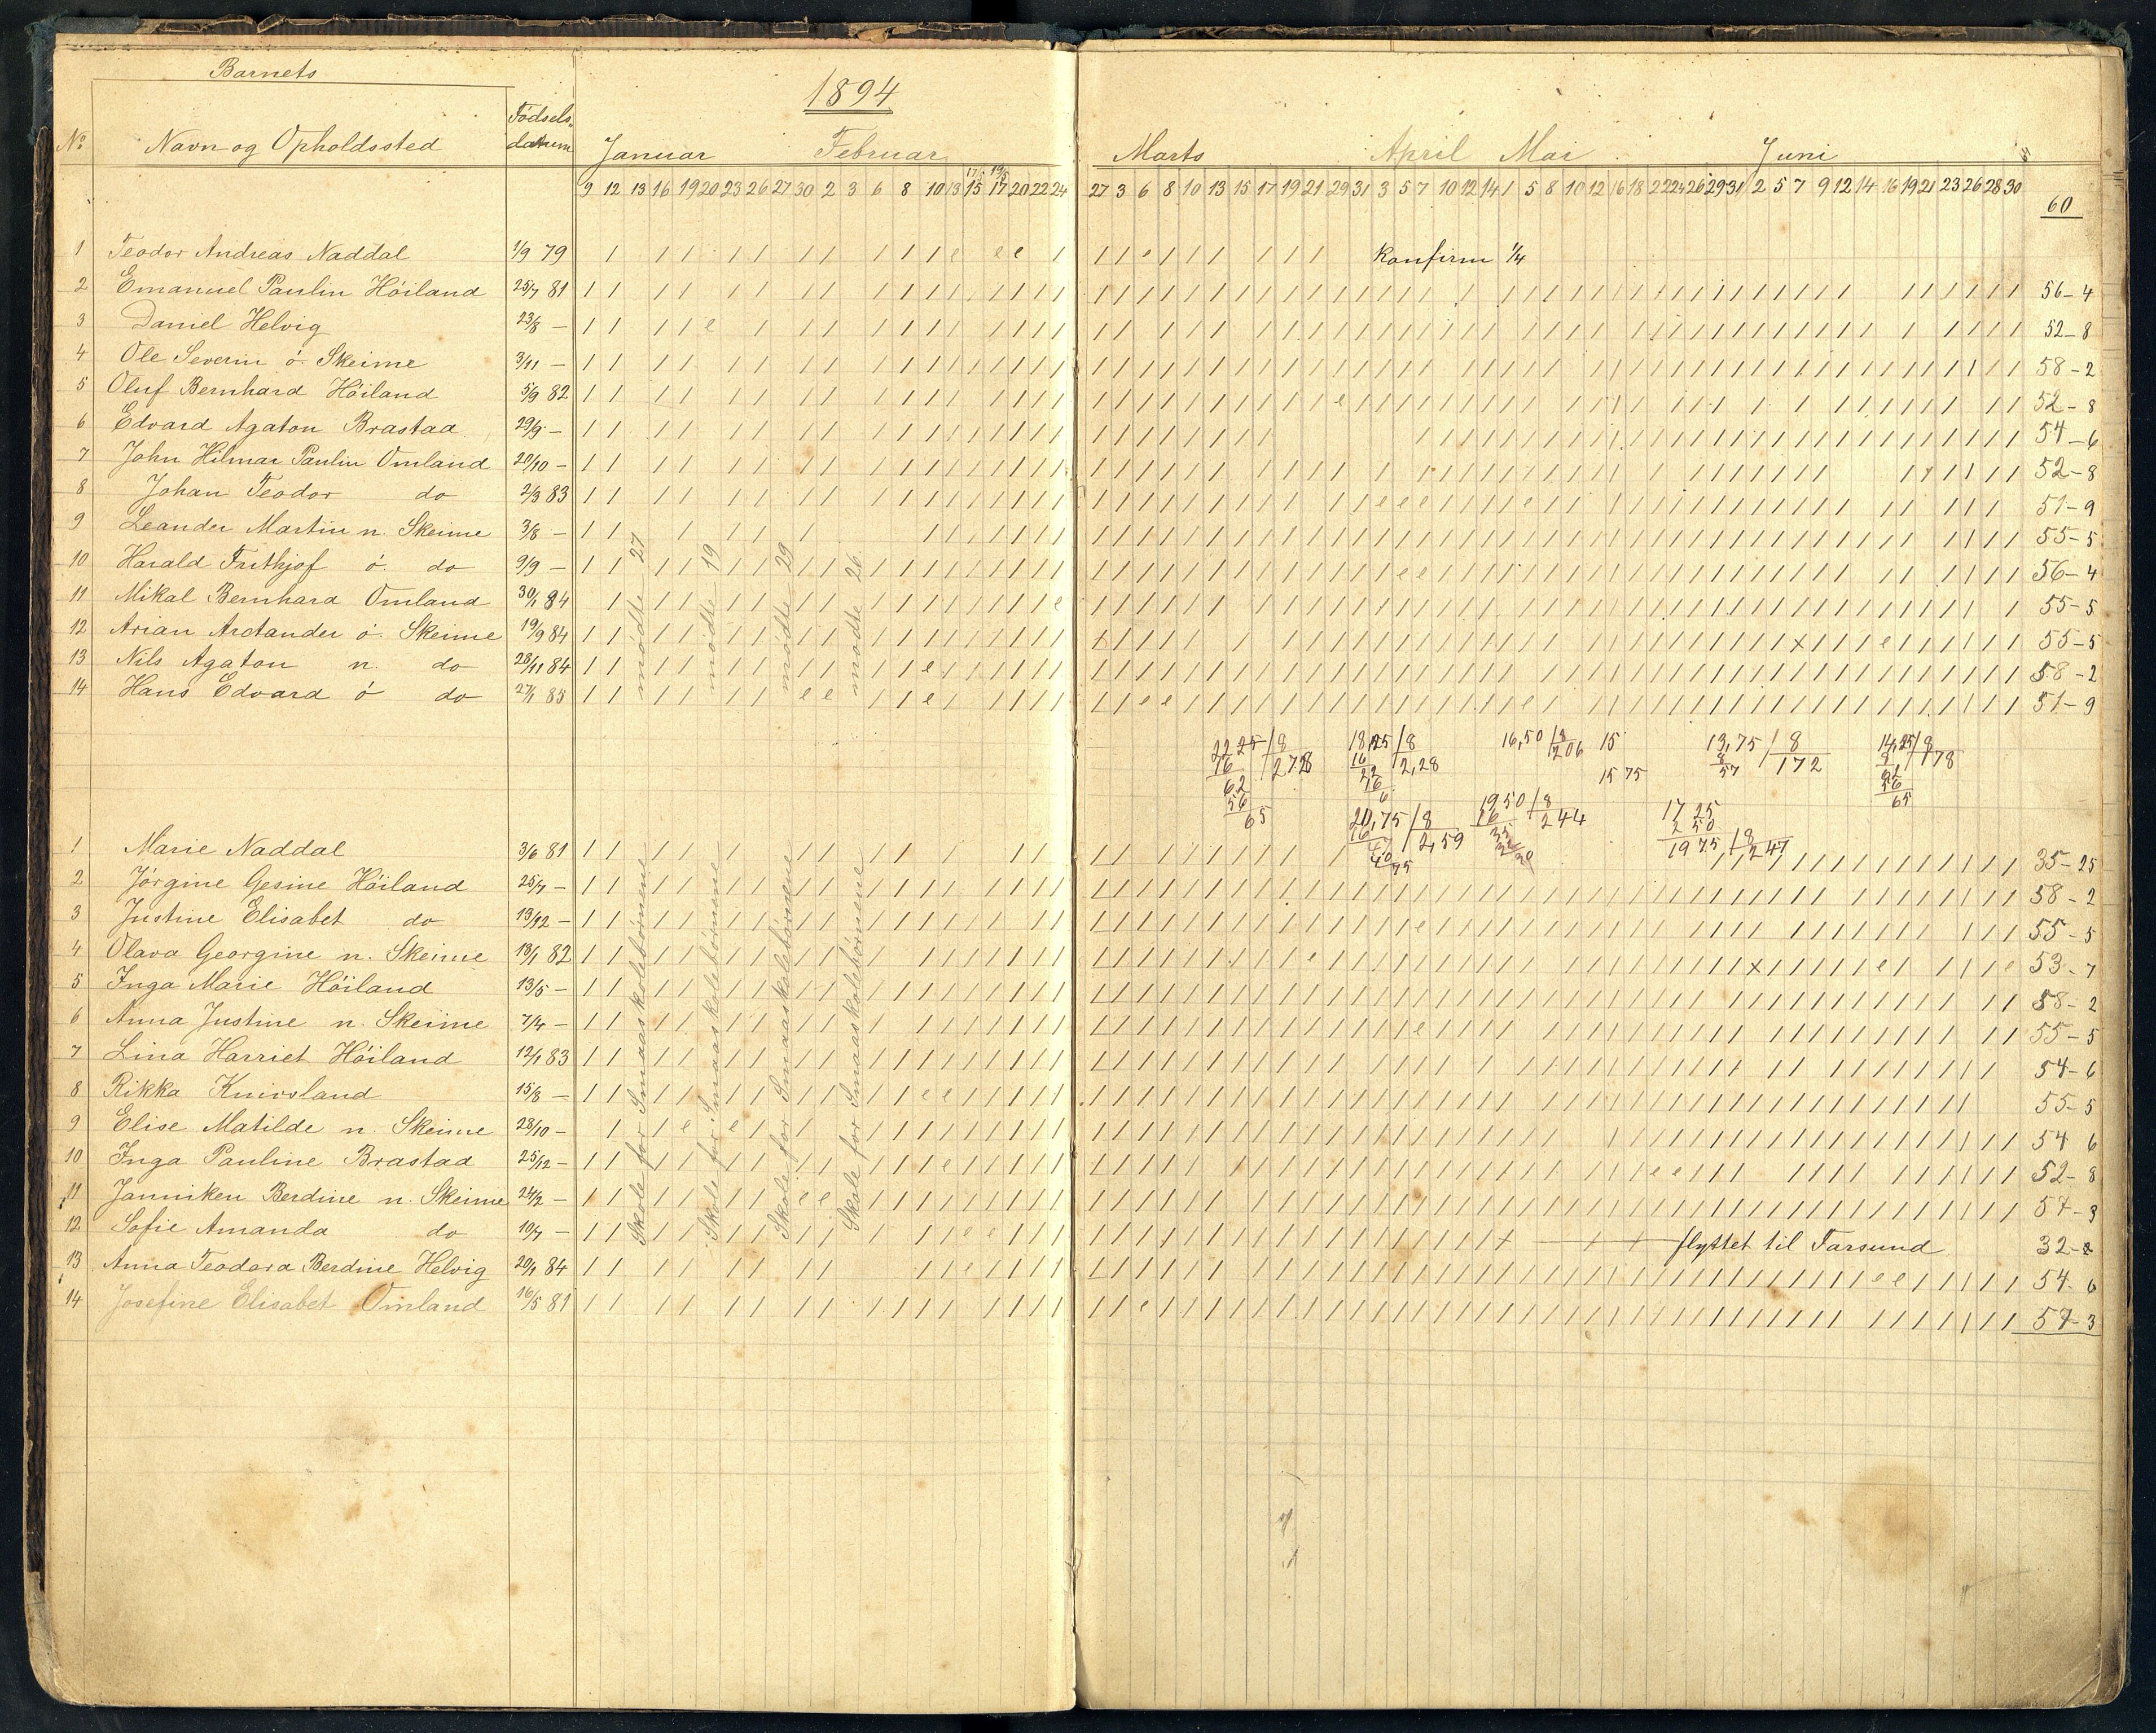 Barnets
1894
№ Navn og Opholdssted Fødsels-datum Januar Februar Marts April Mai Juni
17/5 19/5
9 12 13 16 19 20 23 26 27 30 2 3 6 8 10 13 15 17 20 22 24 27 3 6 8 10 13 15 17 19 21 29 31 3 5 7 10 12 14 1 5 8 10 12 16 18 22 24 26 29 31 2 5 7 9 12 14 16 19 21 23 26 28 30
60
1 Teodor Andreas Naddal 1/9 79 Konfirm 1/4
2 Emanuel Paulin Höiland 25/7 81 56-4
3 Daniel Helvig 23/8 — 52-8
4 Ole Severin ö. Skeime 3/11 — 58-2
5 Oluf Bernhard Höiland 5/9 82 52-8
6 Edvard Agaton Brastad 29/9 — 54-6
7 John Hilmar Paulin Omland 20/10 — 52-8
8 Johan Teodor do 2/3 83 51-9
9 Leander Martin n. Skeime 3/8 — 55-5
10 Harald Frithjof ö. do 9/9 — 56-4
11 Mikal Bernhard Omland 30/1 84 55-5
12 Arian Arctander ö. Skeime 19/9 84 55-5
13 Nils Agaton n. do 28/11 84 58-2
14 Hans Edvard ö do 27/1 85 51-9
Skole for Smaaskolebörnene mødte 27
Skole for Smaaskolebörnene mødte 19
Skole for Smaaskolebörnene mødte 29
Skole for Smaaskolebörnene mødte 26
22 25/8 278
16
62
56
65
18,25/8 2,28
16
22
16
6
16,50/8 206
15
15 75
13,75/8 172
8
57
14,25/8 178
8
62
56
65
20,75/8 2,59
16
47
40
75
1950/8 244
16
35
32
30
17 25
2 50
1975/8 247
1 Marie Naddal 3/6 81 35-25
2 Jörgine Gesine Höiland 25/7 — 58-2
3 Justine Elisabet do 13/12 — 55-5
4 Olava Georgine n. Skeime 13/1 82 53-7
5 Inga Marie Höiland 13/5 — 58-2
6 Anna Justine n. Skeime 7/4 — 55-5
7 Lina Harriet Höiland 12/1 83 54-6
8 Rikka Knivsland 15/8 — 55-5
9 Elise Matilde n. Skeime 28/10 — 54 6
10 Inga Pauline Brastad 25/12 — 52-8
11 Janniken Berdine n. Skeime 24/2 — 57-3
12 Sofie Amanda do 19/7 — flyttet til Farsund 32-2
13 Anna Teodora Berdine Helvig 20/1 84 54-6
14 Josefine Elisabet Omland 16/5 81 57-3